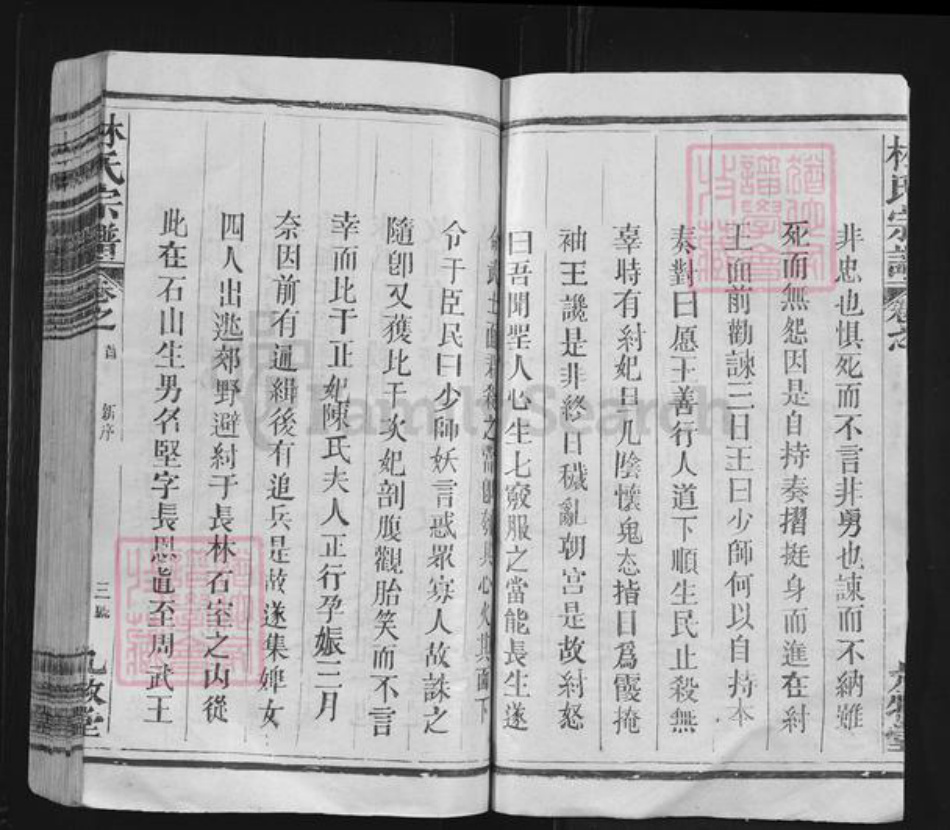 林氏宗譜
非忠也惧死而不言非勇也諫而不納雖
死而無怨因是自持奏摺挺身而進在紂
王面前勸諫三日王曰少師何以自持本
奏對曰愿王善行人道下順生民止殺無
辜時有紂妃旦几陰懷鬼态揩日為霞掩
袖王讒是非終日穢亂朝宫是故紂怒
曰吾聞聖人心生七竅服之當能長生遂
心火其面下
令于臣民曰少師妖言惑眾寡人故誅之
隨卽又獲比干次妃剖腹觀胎笑而不言
幸而比干正妃陳氏夫人正行孕娠三月
奈因前有逼緝後有追兵是故遂集婢女
四人出逃郊野避紂于長林石室之山從
此在石山生男名堅字長恩直至周武王
林氏宗譜
卷之
首
新序
三號
九牧堂
FamilySearch